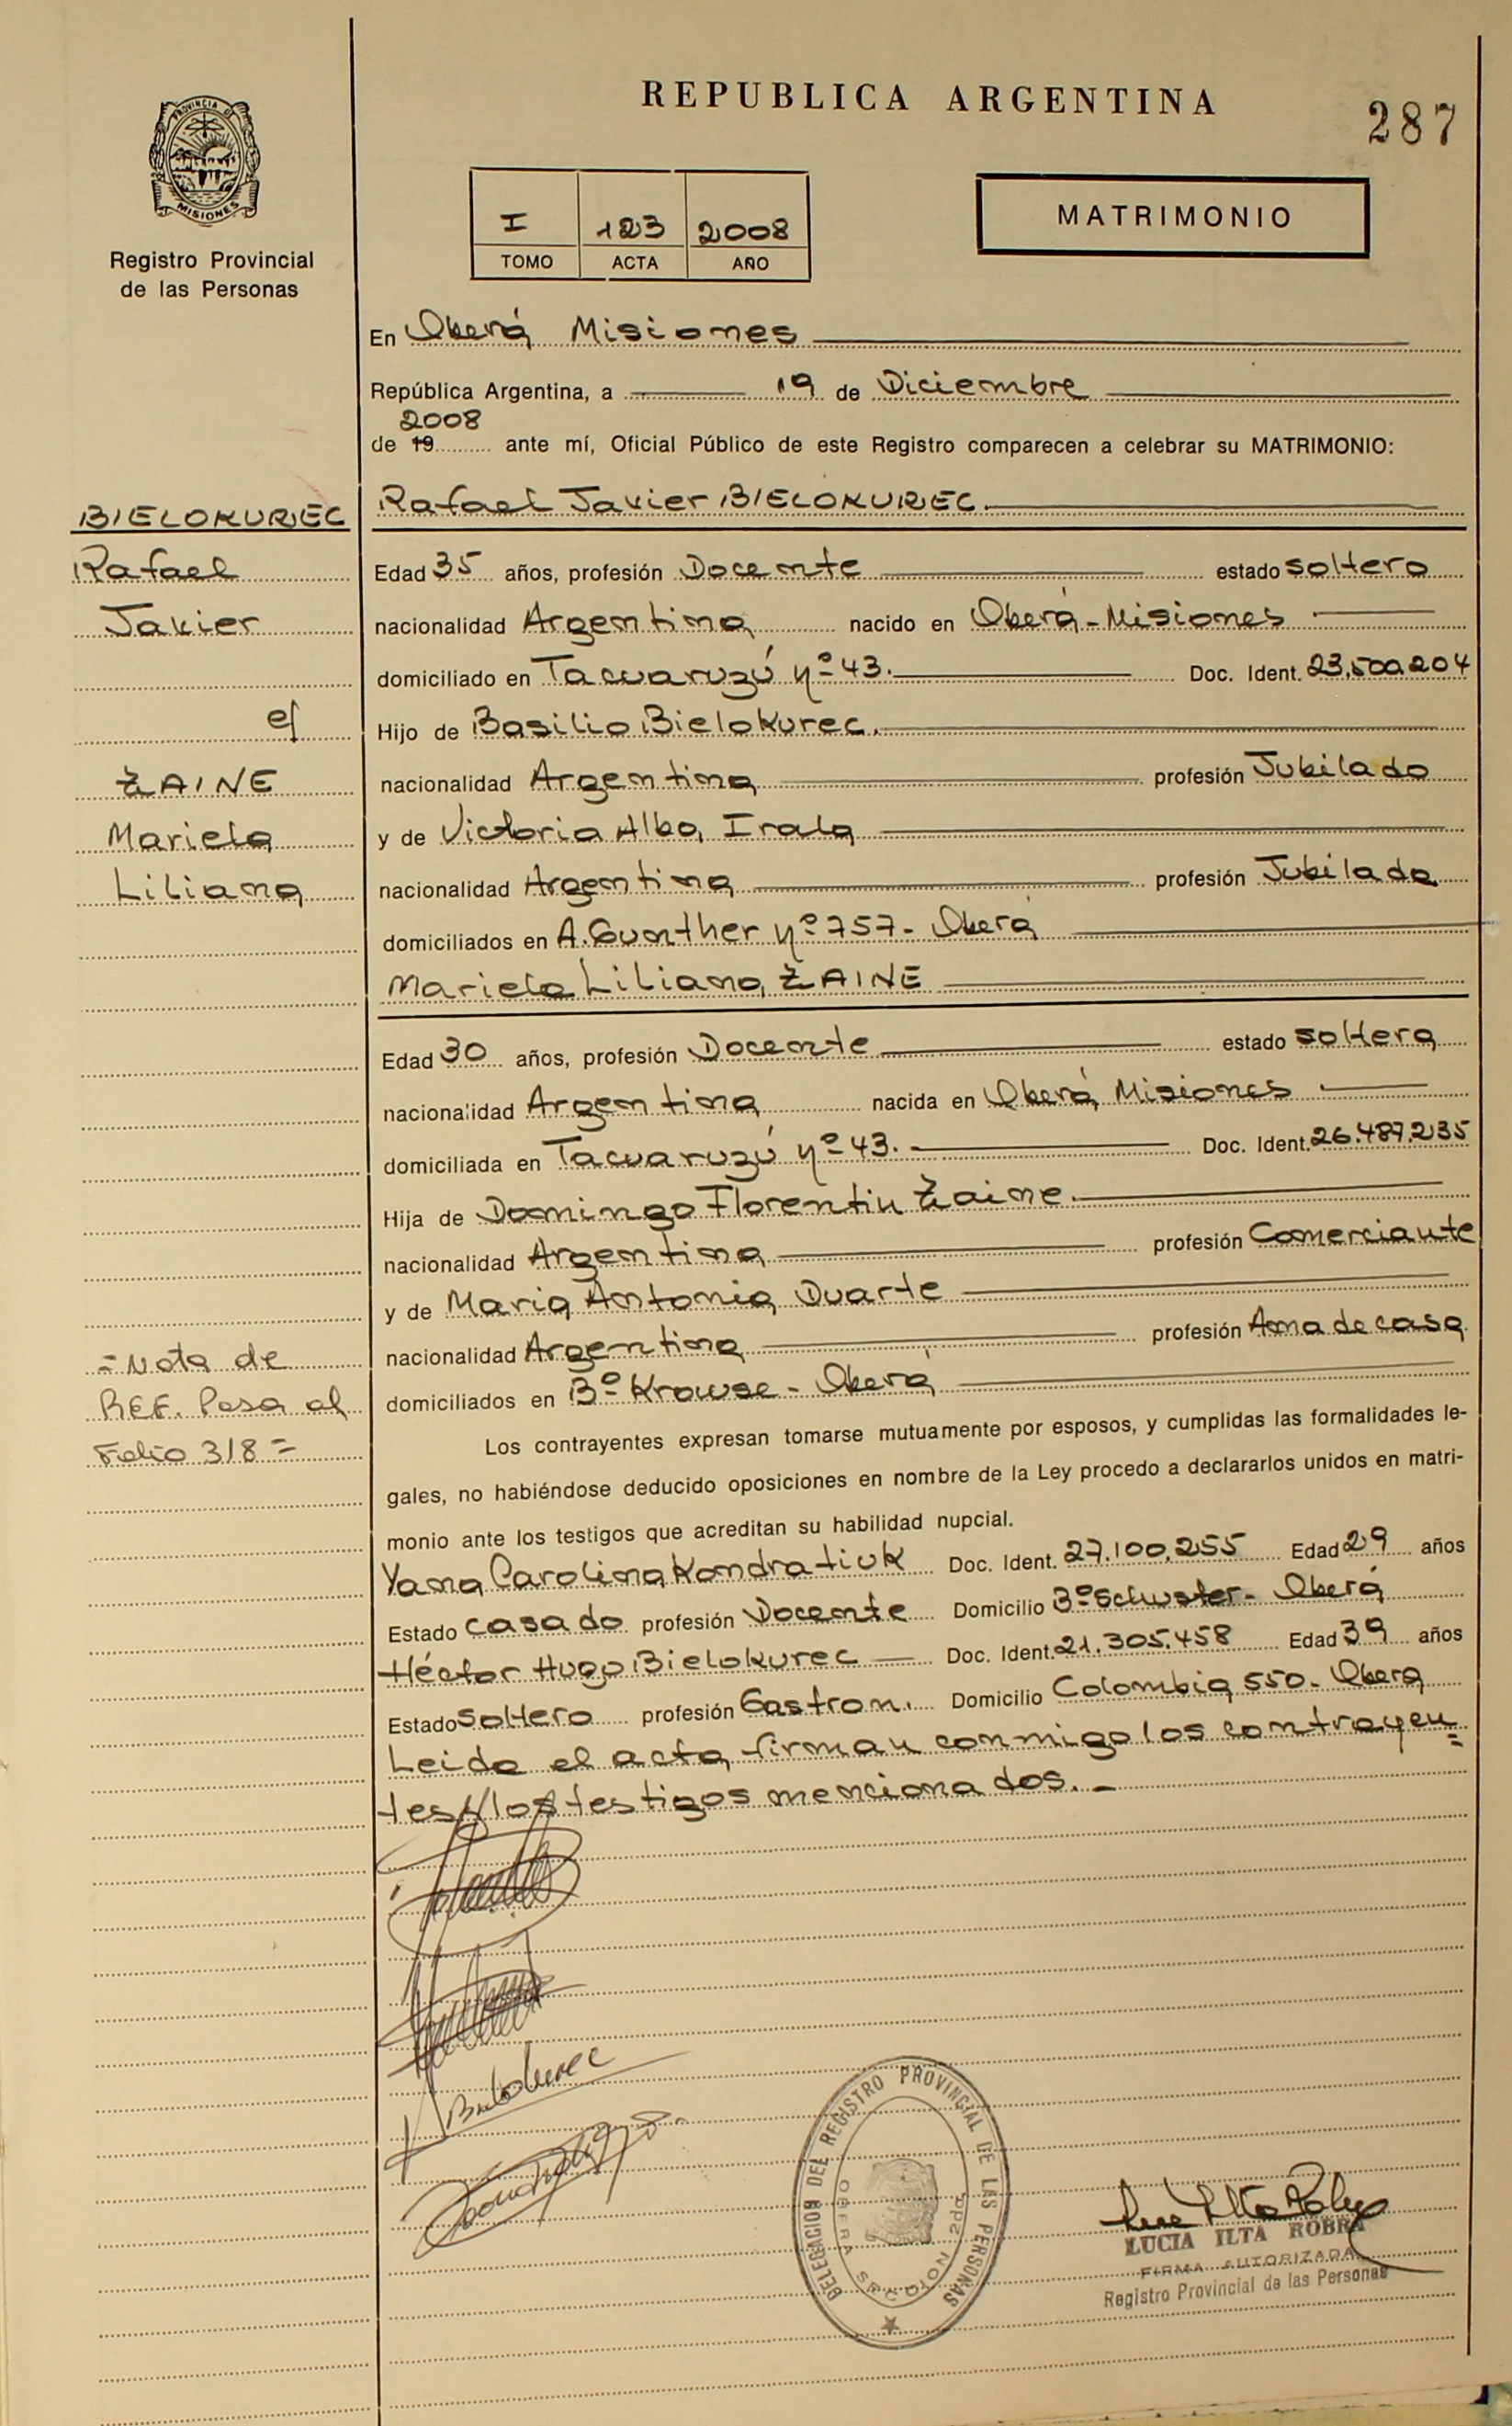 REPUBLICA ARGENTINA
287
PROVINCIA DE
MISIONES
Registro Provincial
de las Personas
I 123 2008
TOMO ACTA AÑO
MATRIMONIO
En Oberá Misiones
República Argentina, a 19 de Diciembre
2008
de 19 ante mí, Oficial Público de este Registro comparecen a celebrar su MATRIMONIO:
Rafael Javier BIELOKUREC.
BIELOKUREC
Rafael
Javier
c/
ZAINE
Mariela
Liliana
Edad 35 años, profesión Docente estado soltero
nacionalidad Argentina nacido en Oberá - Misiones
domiciliado en Tacuaruzú nº 43. Doc. Ident. 23.500.204
Hijo de Basilio Bielokurec.
nacionalidad Argentina profesión Jubilado
y de Victoria Alba Irala
nacionalidad Argentina profesión Jubilada
domiciliados en A. Gunther nº 757 - Oberá
Mariela Liliana ZAINE
Edad 30 años, profesión Docente estado soltera
nacionalidad Argentina nacida en Oberá Misiones
domiciliada en Tacuaruzú nº 43. Doc. Ident. 26.487.235
Hija de Domingo Florentin Zaine.
nacionalidad Argentina profesión Comerciante
y de Maria Antonia Duarte
nacionalidad Argentina profesión Ama de casa
domiciliados en Bº Krause - Oberá
= Nota de
REF. Pasa al
Folio 318 =
Los contrayentes expresan tomarse mutuamente por esposos, y cumplidas las formalidades le-
gales, no habiéndose deducido oposiciones en nombre de la Ley procedo a declararlos unidos en matri-
monio ante los testigos que acreditan su habilidad nupcial.
Yana Carolina Kondratiuk Doc. Ident. 27.100.255 Edad 29 años
Estado casado profesión Docente Domicilio Bº Schuster - Oberá
Héctor Hugo Bielokurec Doc. Ident. 21.305.458 Edad 39 años
Estado soltero profesión Gastron. Domicilio Colombia 550 - Oberá
Leida el acta firman conmigo los contrayen=
tes y los testigos mencionados. -
Bielokurec
DELEGACION DEL REGISTRO PROVINCIAL DE LAS PERSONAS
OBERA SECCION 2da
LUCIA ILTA ROBRA
FIRMA AUTORIZADA
Registro Provincial de las Personas